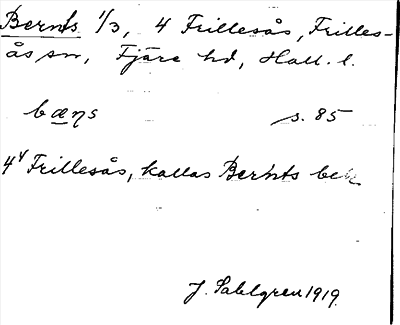 Bernts 1/3, 4 Frillesås, Frilles-
ås sn, Fjäre hd, Hall. l.
bæŋs s. 85
4⁴ Frillesås, kallas Bernts
J. Sahlgren 1919.